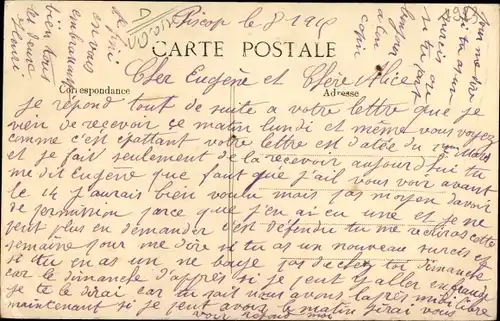 Piscop le 8 1915
CARTE POSTALE
Correspondance
Adresse
Cher Eugène et Chère Alice
je répond tout de suite a votre lettre que je
vien de recevoir ce matin lundi et même vous voyez
comme c'est épattant votre lettre est datée du 1er Mars
et je fait seulement de la recevoir aujourd'hui tu
me dit Eugène que faut que j'ail vous voir avant
le 14 j'aurais bien voulu mais pas moyen d'avoir
de permission parce que j'en ai eu une et je ne
peut plus en demander c'est défendu tu me
semaine pour me dire si tu as un nouveau sursis et
si tu en as un ne bouge pas de chez toi dimanche
car le dimanche d'après si je peut y aller
je te le dirai car tu sait nous avons l'après midi libre
maintenant si je peut avoir le matin j'irai vous
voir répond moi
de fini
en vous
embrassant
bien tous
les deux
Henri